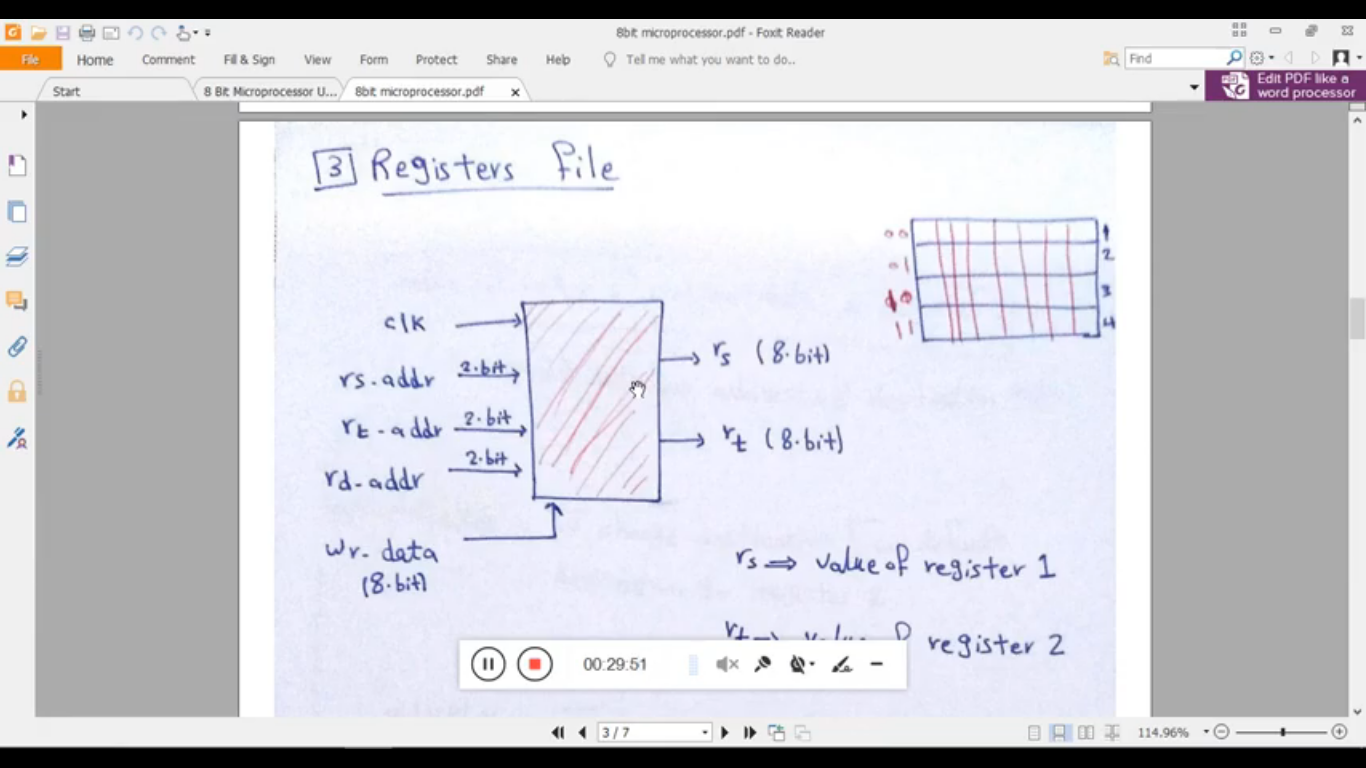 8bit microprocessor.pdf - Foxit Reader
File Home Comment Fill & Sign View Form Protect Share Help Tell me what you want to do.. Find
Start 8 Bit Microprocessor U... 8bit microprocessor.pdf Edit PDF like a
word processor
3 Registers file
00 1
01 2
10 3
11 4
clk
rs (8-bit)
rs-addr 2-bit
rt-addr 2-bit
rt (8-bit)
rd-addr 2-bit
wr-data
(8-bit)
rs ⇒ value of register 1
rt ⇒ value of register 2
00:29:51
3 / 7 114.96%